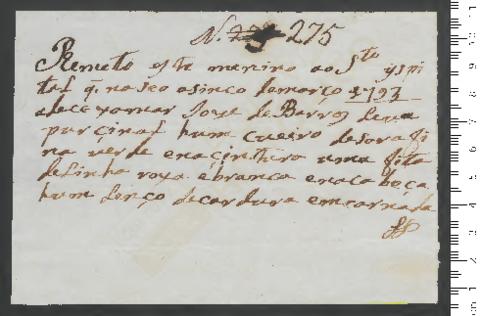 N. 275
Remeto este menino ao Sto yspi
tal q. naseo asinco demarço 1793
adece xamar Joze de Barros leva
por çinal hum Cueiro deSarafi
na verde enaçintura uma fita
deLinha roxa ebranca enacabeça
hum Lenço de emcarnada